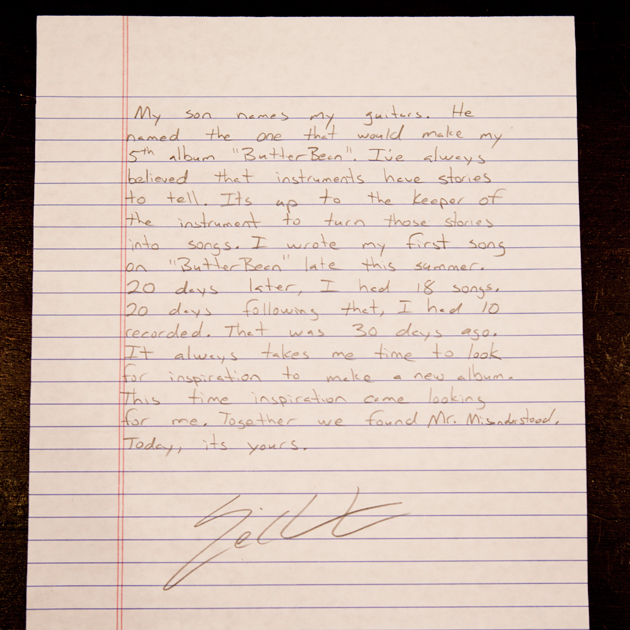 My son names my guitars. He
named the one that would make my
5th album "ButterBean". I've always
believed that instruments have stories
to tell. Its up to the keeper of
the instrument to turn those stories
into songs. I wrote my first song
on "ButterBean" late this summer.
20 days later, I had 18 songs.
20 days following that, I had 10
recorded. That was 30 days ago.
It always takes me time to look
for inspiration to make a new album.
This time inspiration came looking
for me. Together we found Mr. Misunderstood.
Today, its yours.